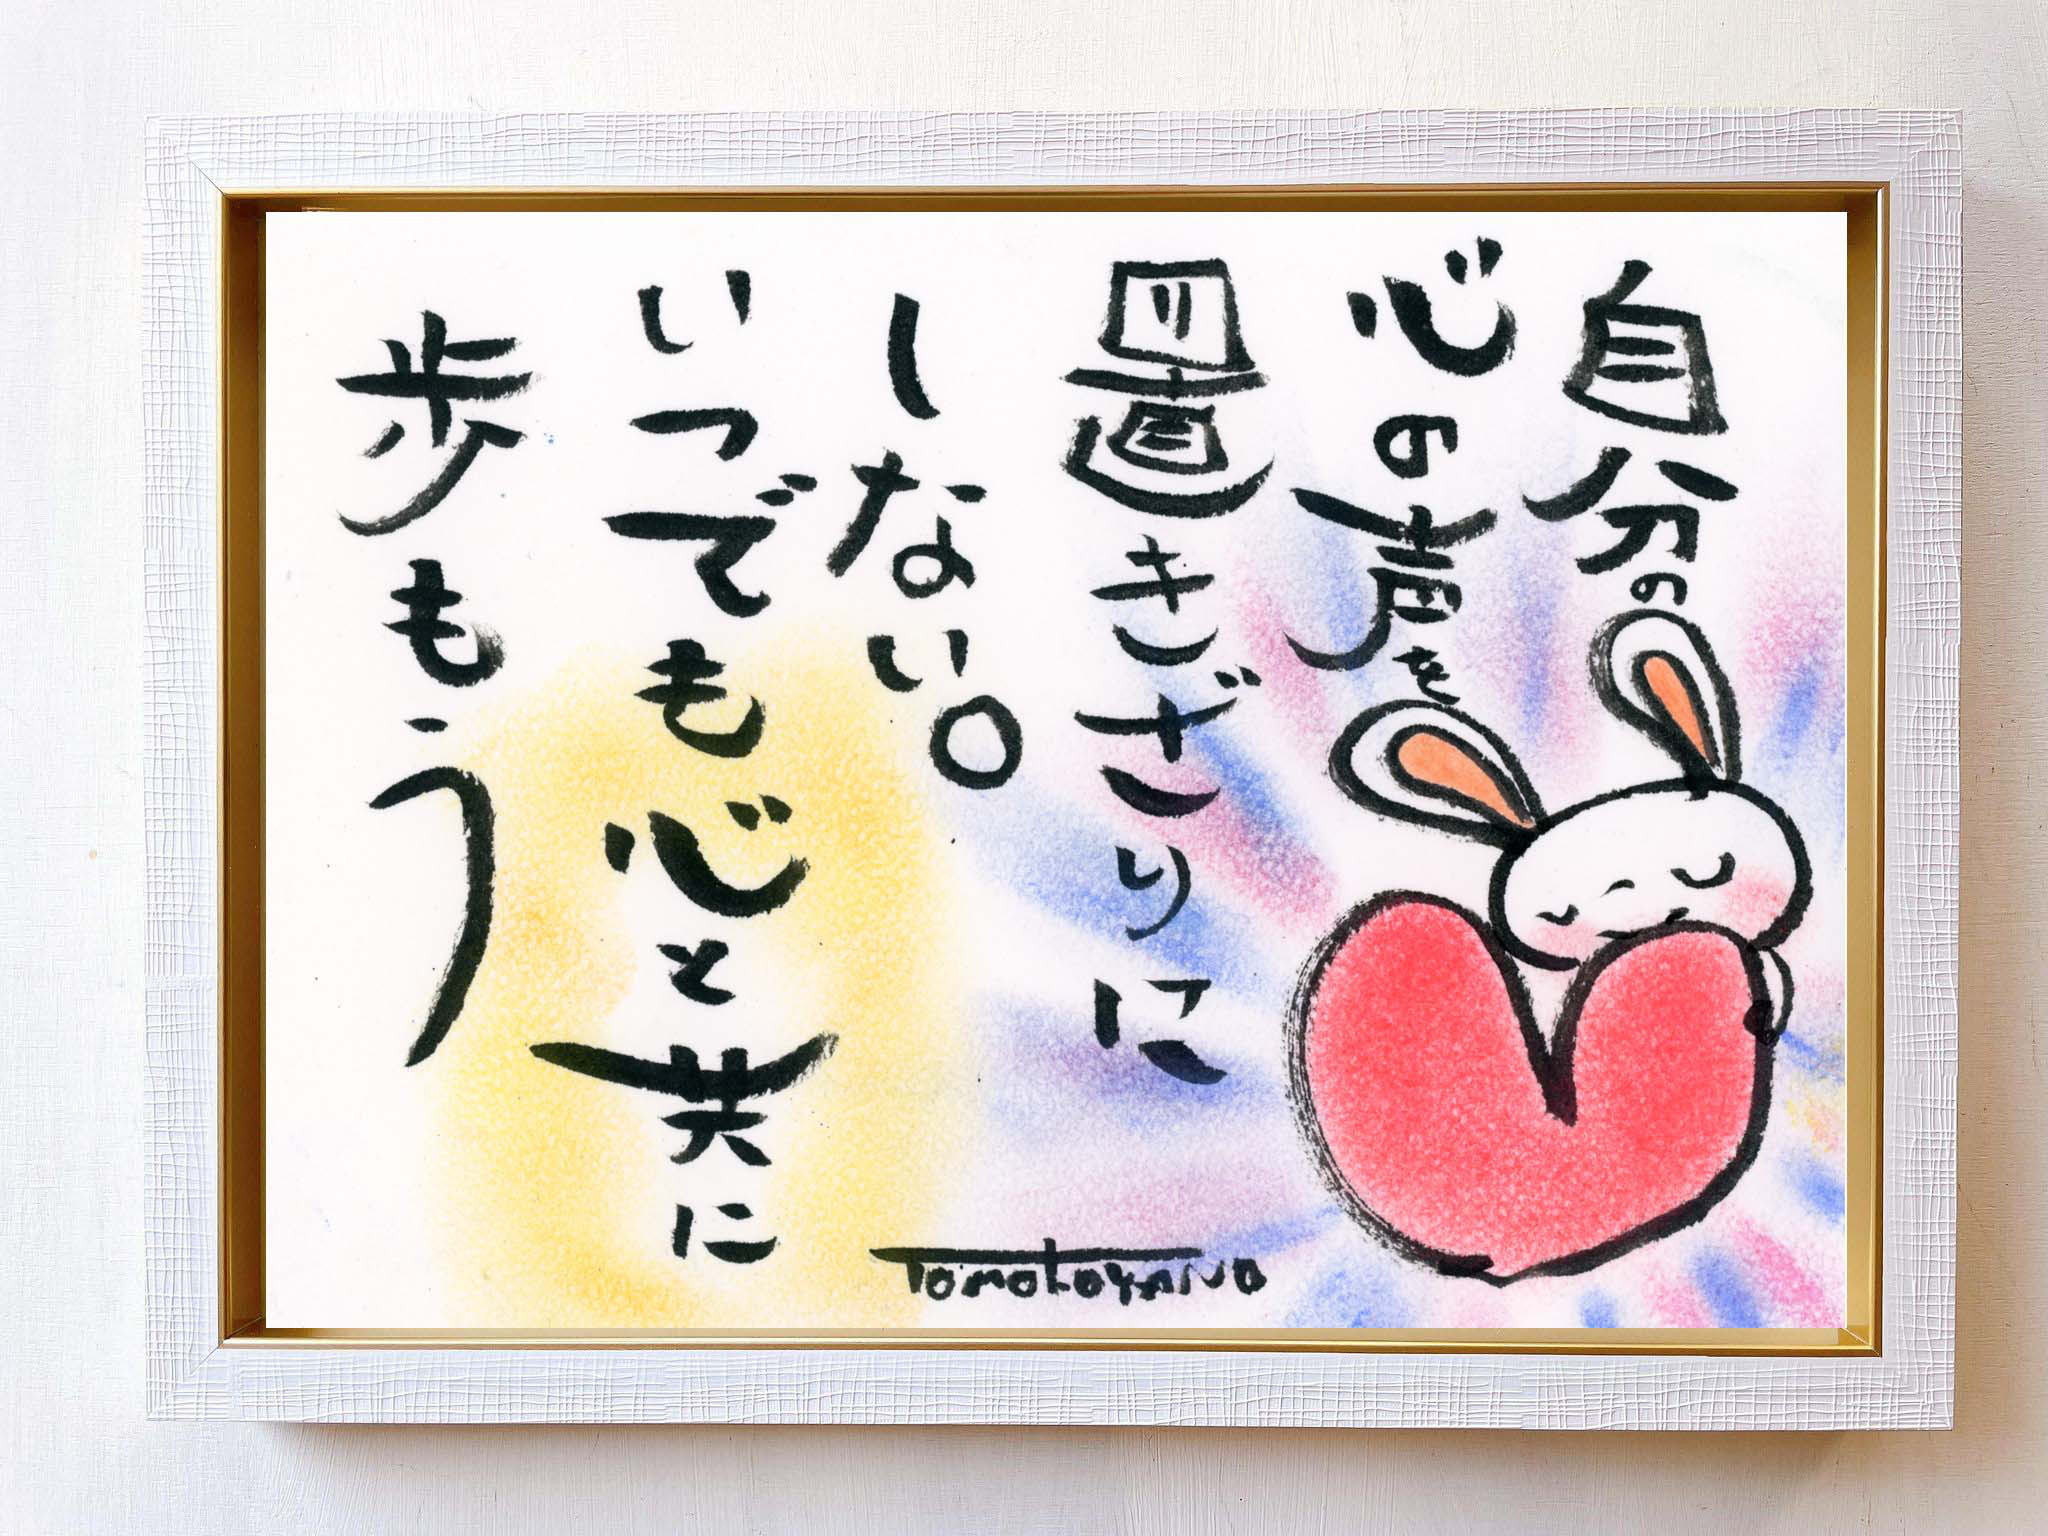 自分の
心の声を
置きざりに
しない。
いつでも心と共に
歩もう
Tomokoyaivo